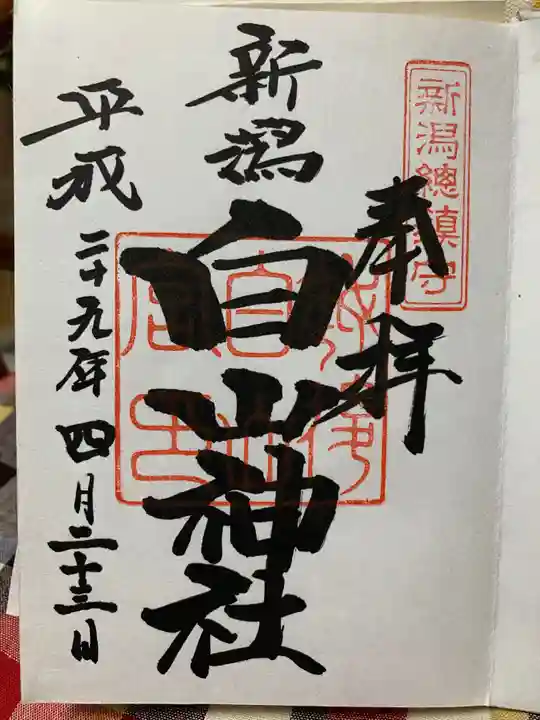 新潟總鎮守
奉拝
新潟
白山神社
平成二十九年四月二十三日